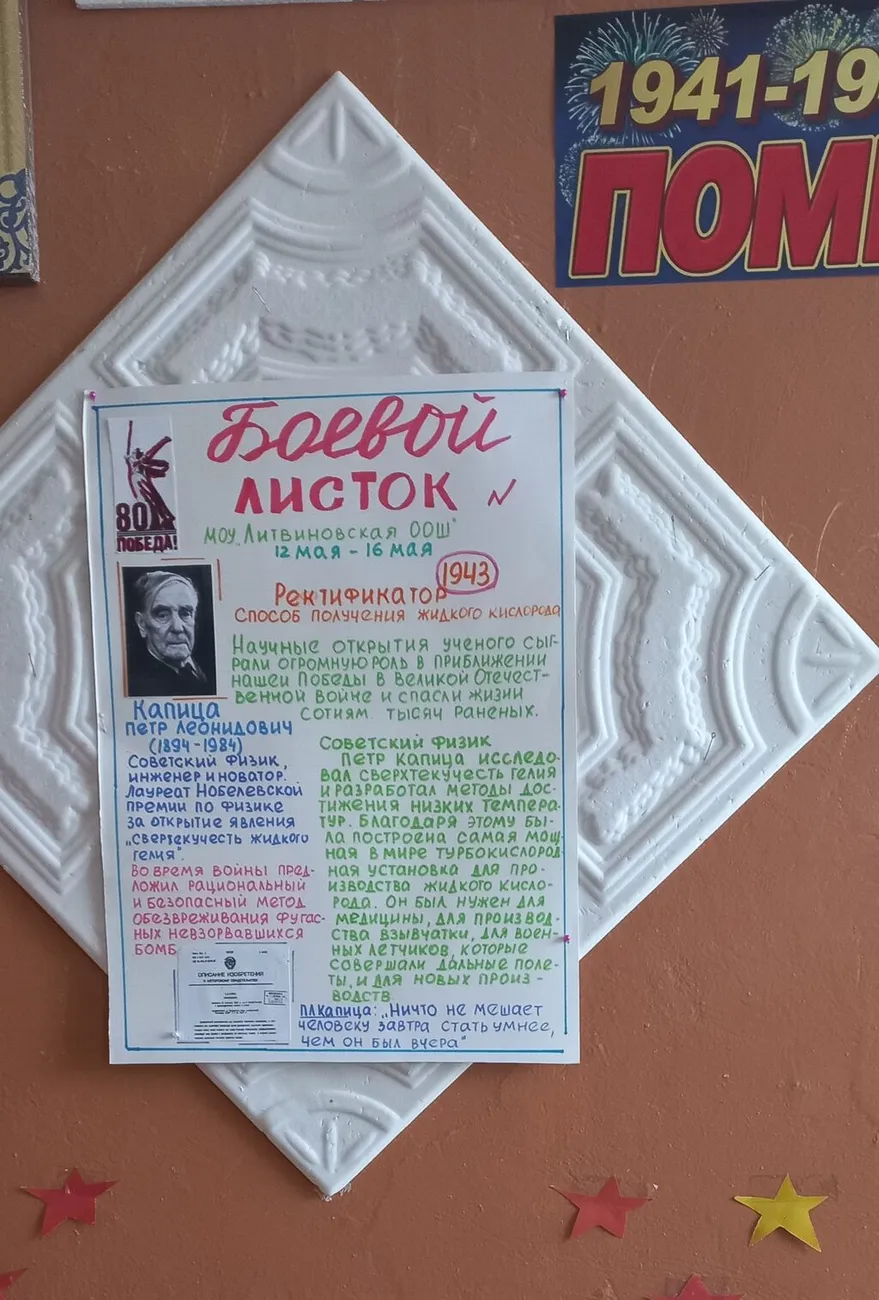 1941-19
ПОМ
Боевой
листок №
80
ПОБЕДА!
МОУ „Литвиновская ООШ"
12 мая - 16 мая
1943
Ректификатор
способ получения жидкого кислорода
Научные открытия ученого сыг-
рали огромную роль в приближении
нашей Победы в Великой Отечест-
венной войне и спасли жизни
сотиям тысяч раненых.
Капица
Петр Леонидович
(1894-1984)
Советский физик,
инженер и новатор.
Лауреат Нобелевской
премии по физике
за открытие явления
„свертекучесть жидкого
гелия".
Во время войны пред-
ложил рациональный
и безопасный метод
обезвреживания фугас-
ных невзорвавшихся
бомб
Советский физик
Петр Капица исследо-
вал сверхтекучесть гелия
и разработал методы дос-
тижения низких темпера-
тур. Благодаря этому бы-
ла построена самая мощ-
ная в мире турбокислород-
ная установка для про-
изводства жидкого кисло-
рода. Он был нужен для
медицины, для производ-
ства взрывчатки, для воен-
ных летчиков, которые
совершали дальные поле-
ты, и для новых произ-
водств
ОПИСАНИЕ ИЗОБРЕТЕНИЯ
П.Л.Капица: „Ничто не мешает
человеку завтра стать умнее,
чем он был вчера"